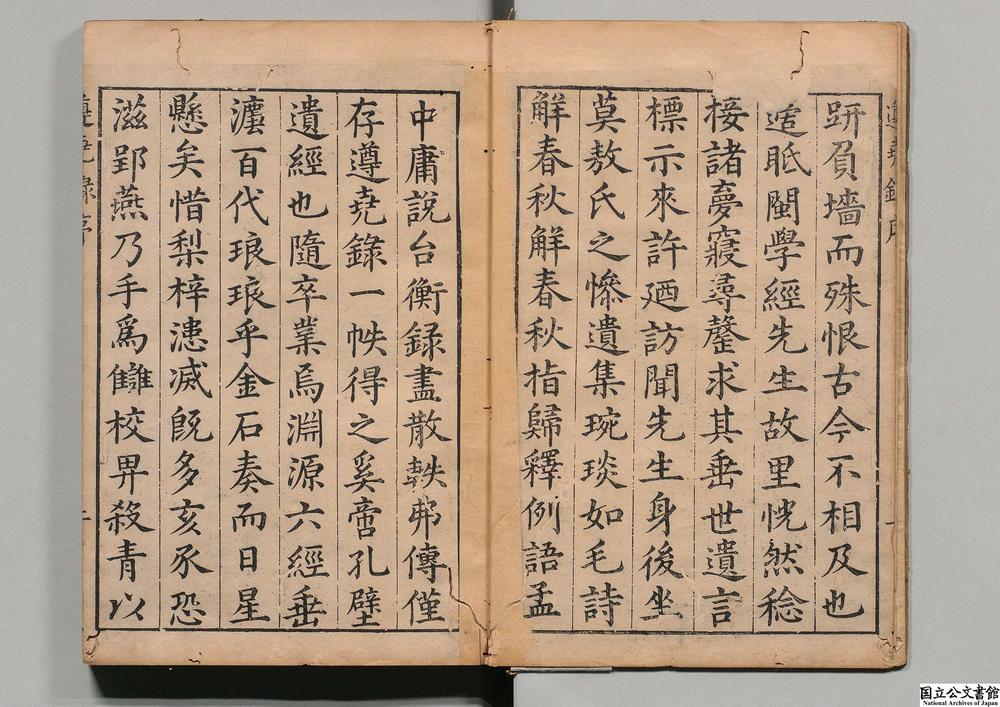 趼負墻而殊恨古今不相及也
邇眡閩學經先生故里恍然稔
接諸夢寢尋聲求其垂世遺言
標示來許廼訪聞先生身後坐
莫敖氏之慘遺集琬琰如毛詩
解春秋解春秋指歸釋例語孟
中庸說台衡錄盡散軼弗傳僅
存遵堯錄一帙得之奚啻孔壁
遺經也隨卒業焉淵源六經垂
瀍百代琅琅乎金石奏而日星
懸矣惜梨梓漶滅旣多亥豕恐
滋郢燕乃手爲讎校畀殺青以
遵堯錄序
一
国立公文書館
National Archives of Japan